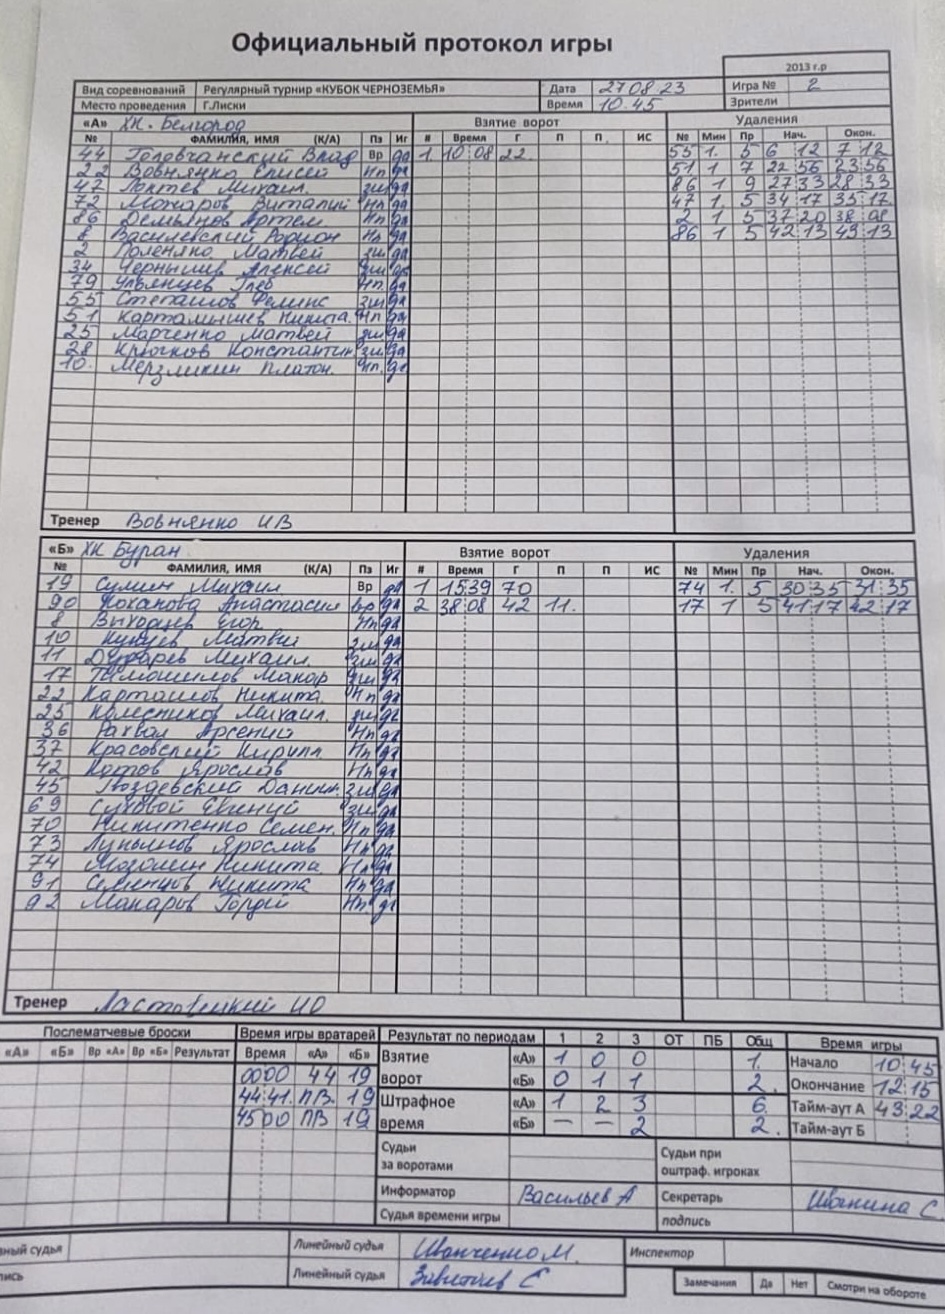 Официальный протокол игры
2013 г.р
Вид соревнований Регулярный турнир «КУБОК ЧЕРНОЗЕМЬЯ» Дата 27 08 23 Игра № 2
Место проведения Г.Лиски Время 10.45 Зрители
«А» ХК. Белгород Взятие ворот Удаления
№ ФАМИЛИЯ, ИМЯ (К/А) Пз Иг # Время Г П П ИС № Мин Пр Нач. Окон.
44 Головчанский Влад Вр да 1 10:08 22. 55 1. 5 6 12 7 12
22 Вовнянко Елисей Нп да 51 1 7 22 56 23 56
47 Лоптев Михаил. защ да 86 1 9 27 33 28 33
72 Мочаров Виталий Нп да 47 1. 5 34 17 35 17
86 Демьянов Артем Нп да 2 1 5 37 20 38 08
8 Василевский Родион Нп да 86 1 5 42 13 43 13
2 Поленяко Матвей защ да
34 Чернышев Алексей защ да
79 Ульянцев Глеб Нп. да
55 Степашов Феликс защ да
51 Картамышев Никита. Нп да
25 Марченко Матвей защ да
28 Крючков Константин защ да
10. Мерзликин Платон. Нп. да
Тренер Вовнянко И В
«Б» ХК Буран Взятие ворот Удаления
№ ФАМИЛИЯ, ИМЯ (К/А) Пз Иг # Время Г П П ИС № Мин Пр Нач. Окон.
19 Сумин Михаил Вр да 1 15:39 70 74 1. 5 30:35 31:35
90 Коханова Анастасия Вр да 2 38:08 42 11. 17 1 5 41:17 42:17
8 Выходцев Егор Нп да
10 Матвей защ да
11 Михаил. защ да
17 Макар защ да
22 Карташов Никита Нп да
25 Колесников Михаил. защ да
36 Рахвал Арсений Нп да
37 Красовский Кирилл Нп да
42 Котов Ярослав Нп да
45 Гвоздевский Данил. защ да
69 Суховой Евгений защ да
70 Никитенко Семен. Нп да
73 Лукьянов Ярослав Нп да
74 Мозолин Никита Нп да
91 Семенцов Никита Нп да
92 Макаров Гордей Нп. да
Тренер Ластовецкий И О
Послематчевые броски Время игры вратарей Результат по периодам 1 2 3 ОТ ПБ Общ Время игры
«А» «Б» Вр «А» Вр «Б» Результат Время «А» «Б» Взятие «А» 1 0 0 1. Начало 10 45
0000 44 19 ворот «Б» 0 1 1 2. Окончание 12 15
44:41. ПВ. 19 Штрафное «А» 1 2 3 6. Тайм-аут А 43:22
4500 ПВ 19 время «Б» — — 2 2. Тайм-аут Б
Судьи за воротами Судьи при оштраф. игроках
Информатор Васильев А Секретарь Иванина С.
Судья времени игры подпись
ный судья Линейный судья Иванченко М. Инспектор
пись Линейный судья С Замечания Да Нет Смотри на обороте